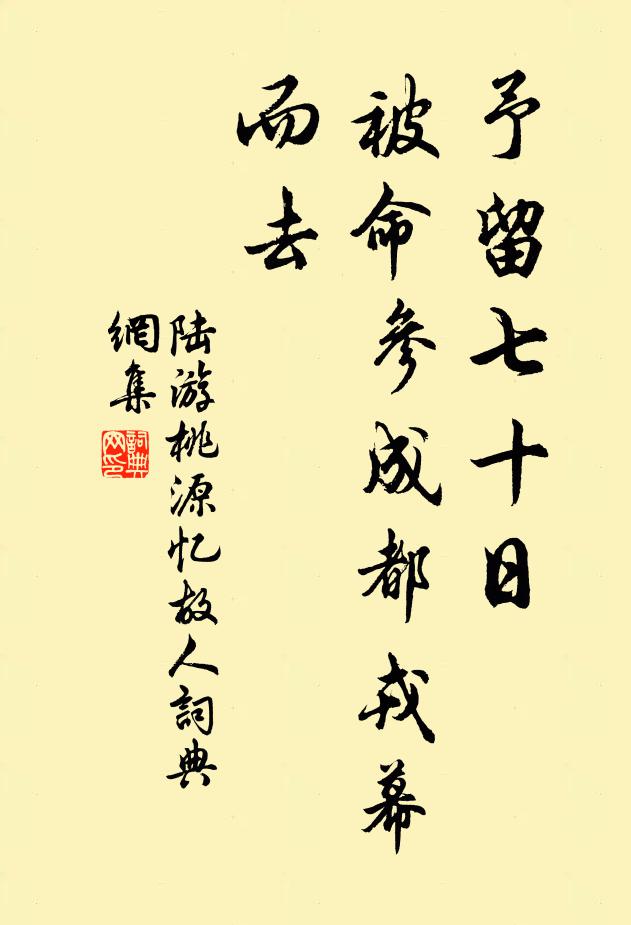 予留七十日
被命參成都戎幕
而去
陆游桃源忆故人詞典
網集
詞典
网印